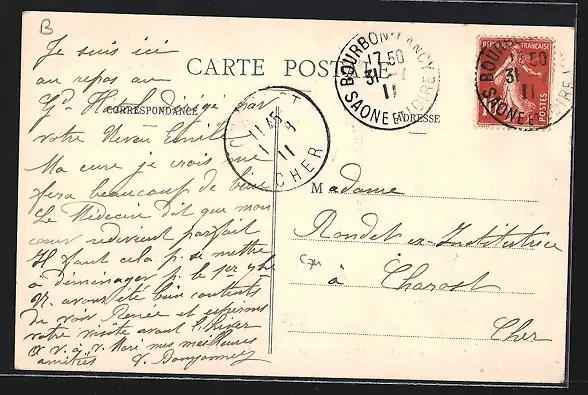 B
Je suis ici
au repos au
Gd Hotel dirigé par
votre Neveu Emile
Ma cure je crois me
fera beaucoup de bien
Le Médecin dit que mon
cœur redevient parfait
Il faut cela p. se mettre
à déménager p. le 1er 9bre
N. avons été bien contents
de voir Renée et espérons
votre visite avant l'hiver
A v. à v. Mari mes meilleures
amitiés
CARTE POSTALE
CORRESPONDANCE
ADRESSE
BOURBON-LANCY
17 50
31
11
SAONE ET LOIRE
REPUBLIQUE FRANÇAISE
POSTES
BOURBON
50
31
11
SAONE ET LOIRE
11 45
1
11
CHER
Madame
Rondet ex-Institutrice
à Charost
Cher